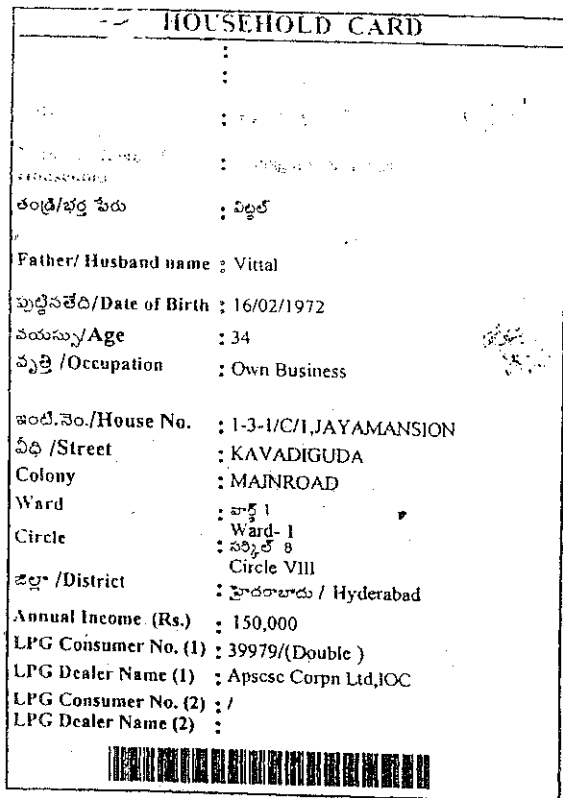 HOUSEHOLD CARD
:
:
:
:
తండ్రి/భర్త పేరు : విట్టల్
Father/ Husband name : Vittal
పుట్టినతేది/Date of Birth : 16/02/1972
వయస్సు/Age : 34
వృత్తి /Occupation : Own Business
ఇంటి.నెం./House No. : 1-3-1/C/1,JAYAMANSION
వీధి /Street : KAVADIGUDA
Colony : MAINROAD
Ward : వార్డ్ 1
Ward- 1
Circle : సర్కిల్ 8
Circle VIII
జిల్లా /District : హైదరాబాదు / Hyderabad
Annual Income (Rs.) : 150,000
LPG Consumer No. (1) : 39979/(Double )
LPG Dealer Name (1) : Apscsc Corpn Ltd,IOC
LPG Consumer No. (2) : /
LPG Dealer Name (2) :